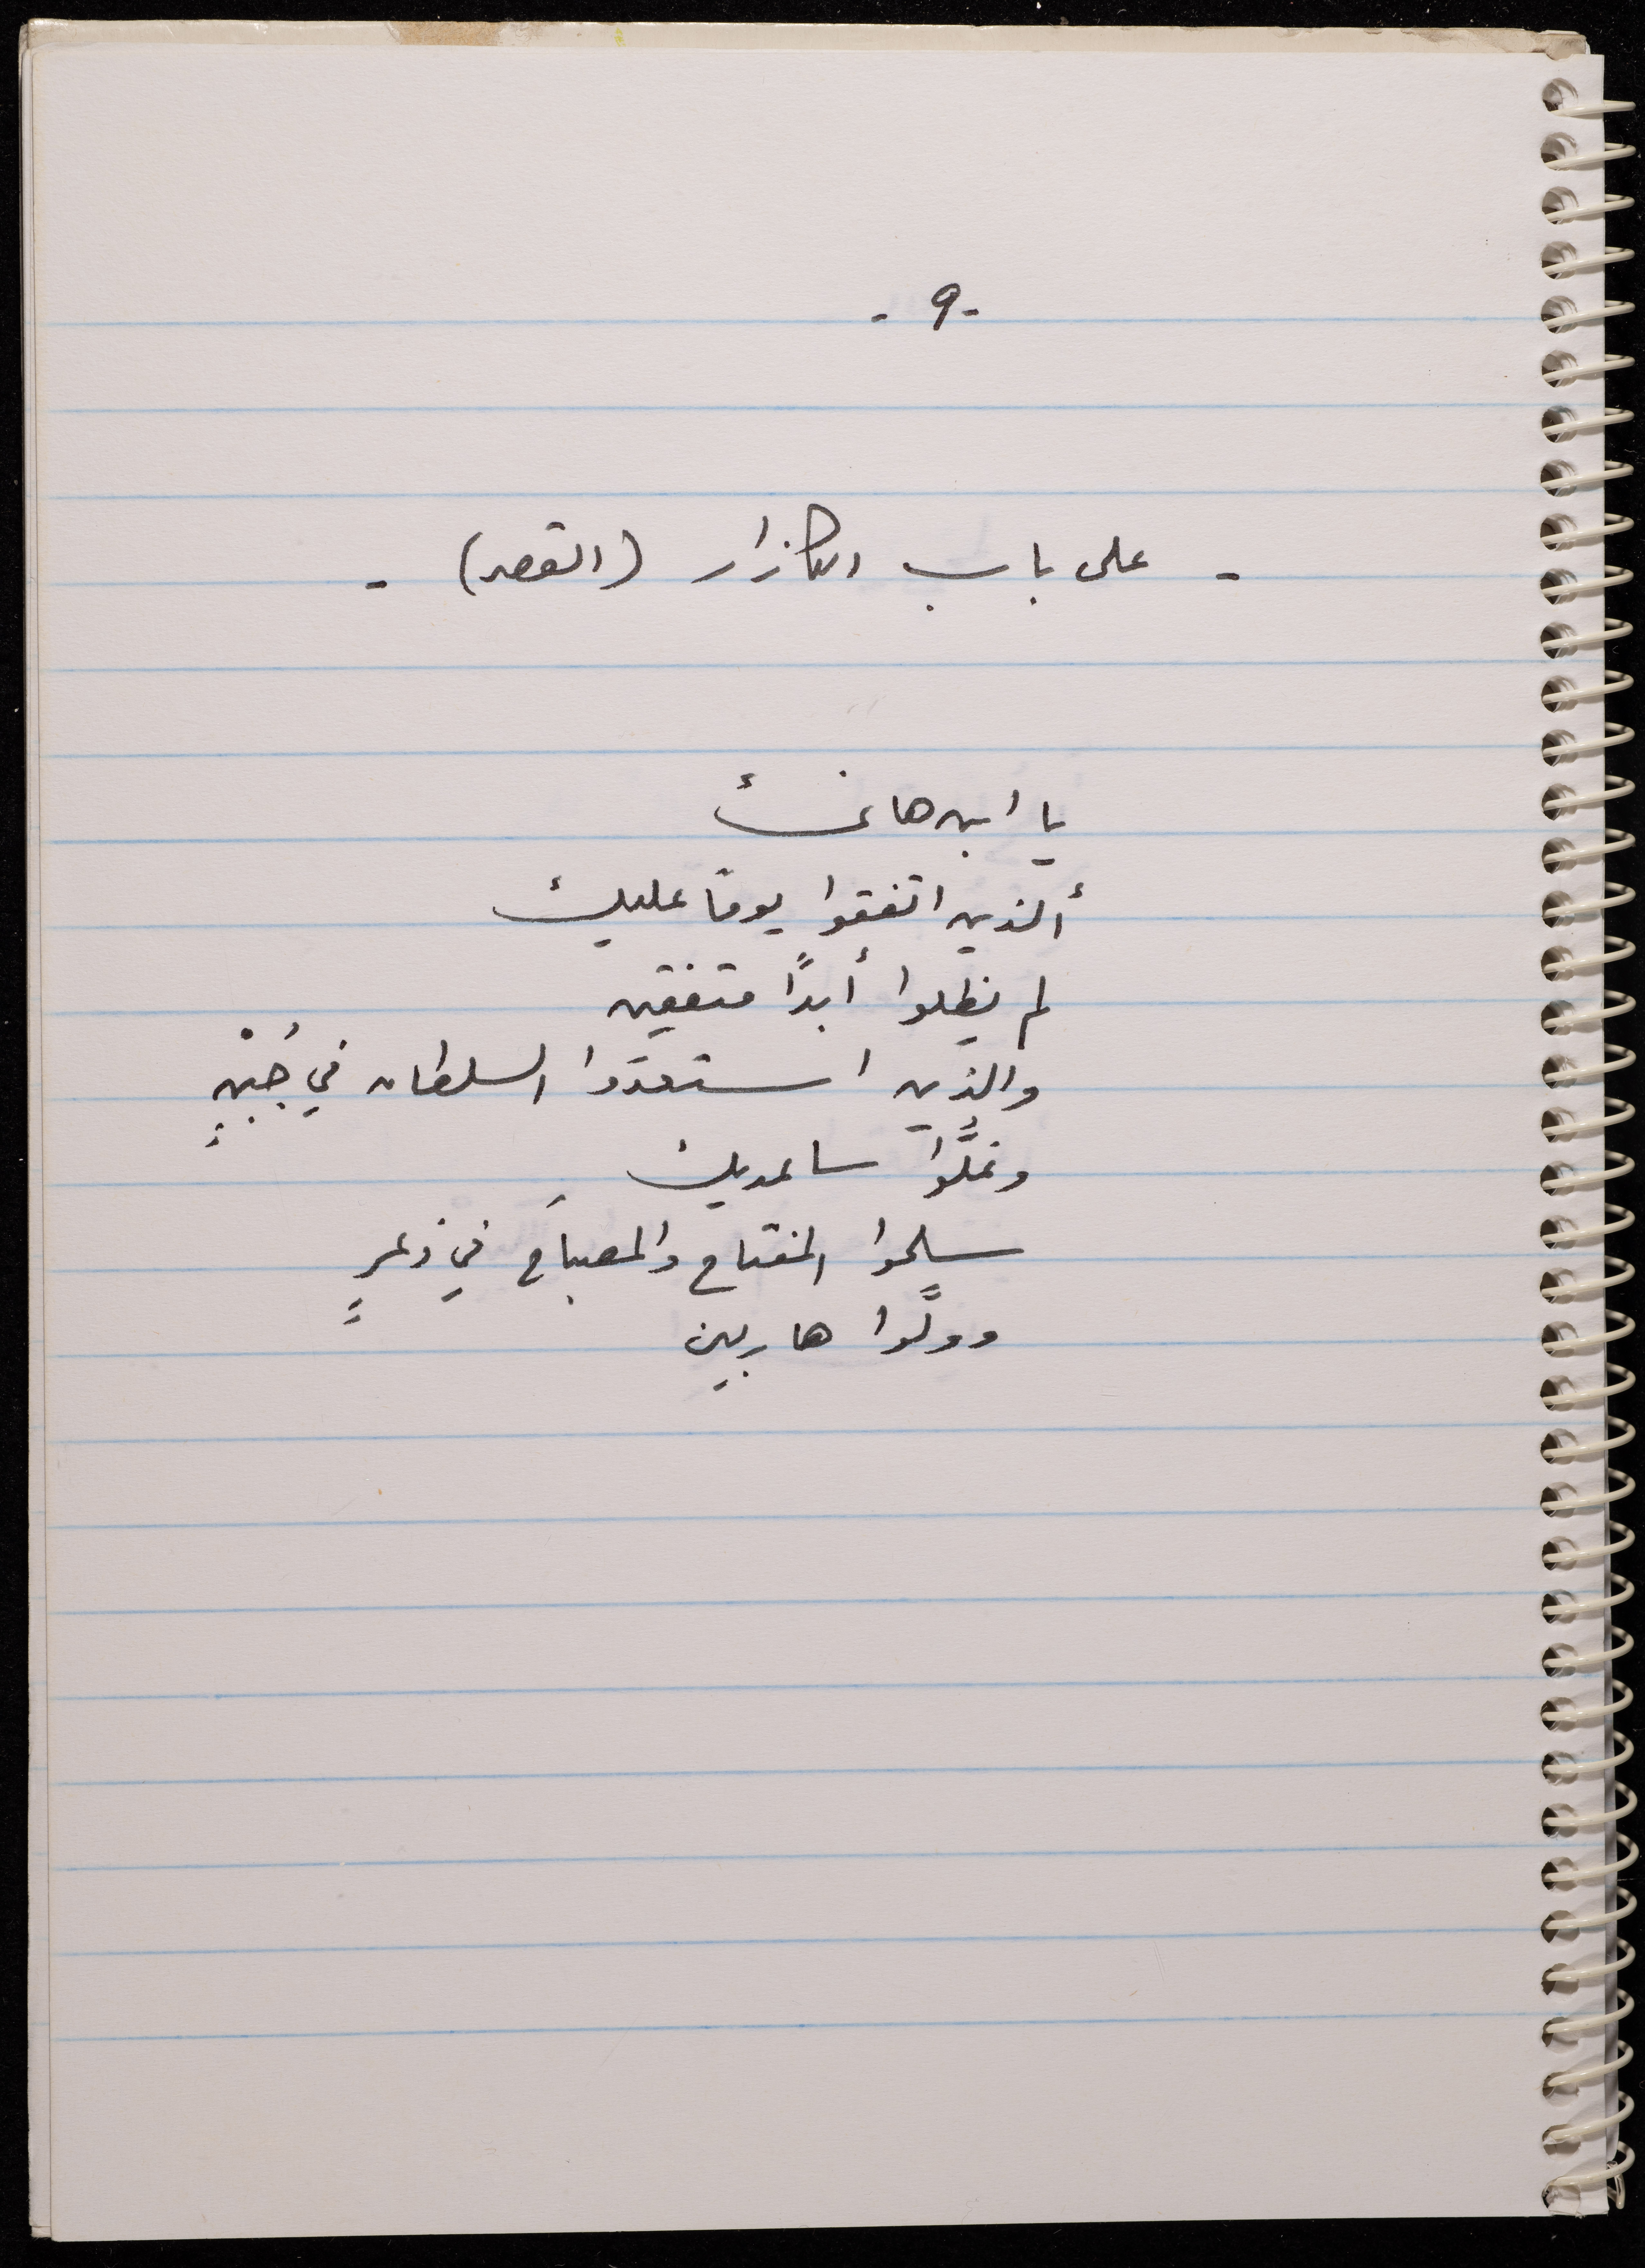 - ٩ -
- على باب الكازار (القصر) -
يا ابن هانئ
ألذين اتفقوا يومًا عليك
لم يظلوا أبدًا متفقين
والذين استعدَوا السلطان في جُبْنٍ
وغلُّوا ساعديك
سلّموا المفتاح والمصباحَ في ذعرٍ
وولَّوا هاربين